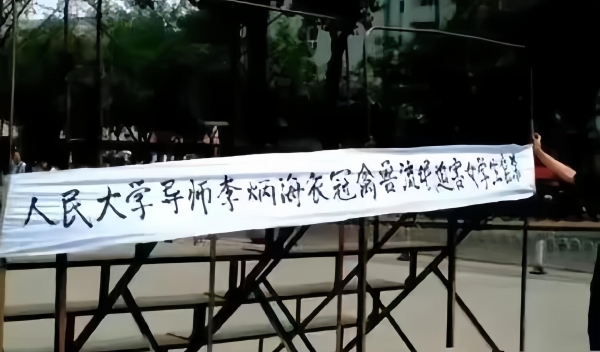 人民大学导师李炳海衣冠禽兽流氓迫害女学生